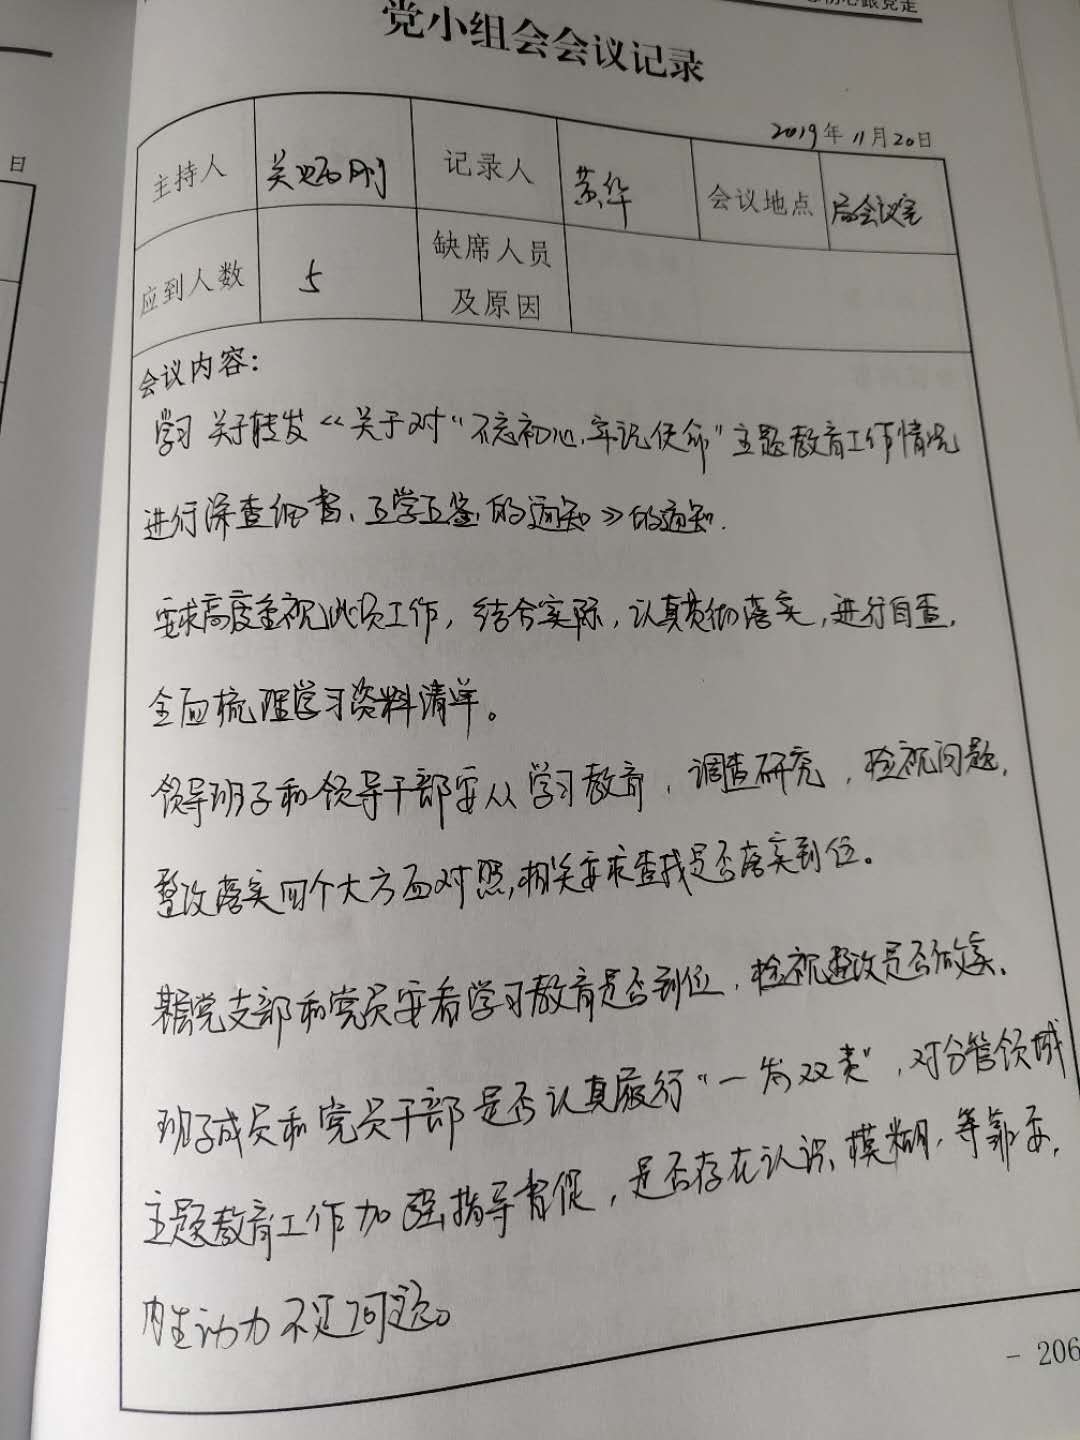 初心跟党走
党小组会会议记录
2019年11月20日
日
主持人 关 刚 记录人 华 会议地点 局会议室
应到人数 5 缺席人员
及原因
会议内容：
学习关于转发《关于对“不忘初心、牢记使命”主题教育工作情况
进行深查细督、互学互鉴的通知》的通知.
要求高度重视此项工作，结合实际，认真贯彻落实，进行自查，
全面梳理学习资料清单。
领导班子和领导干部要从学习教育，调查研究，检视问题，
整改落实四个大方面对照，相关要求查找是否落实到位。
基层党支部和党员要看学习教育是否到位，检视整改是否做实、
班子成员和党员干部是否认真履行“一岗双责”，对分管领域
主题教育工作加强指导督促，是否存在认识模糊，等靠要，
内生动力不足问题。
- 206